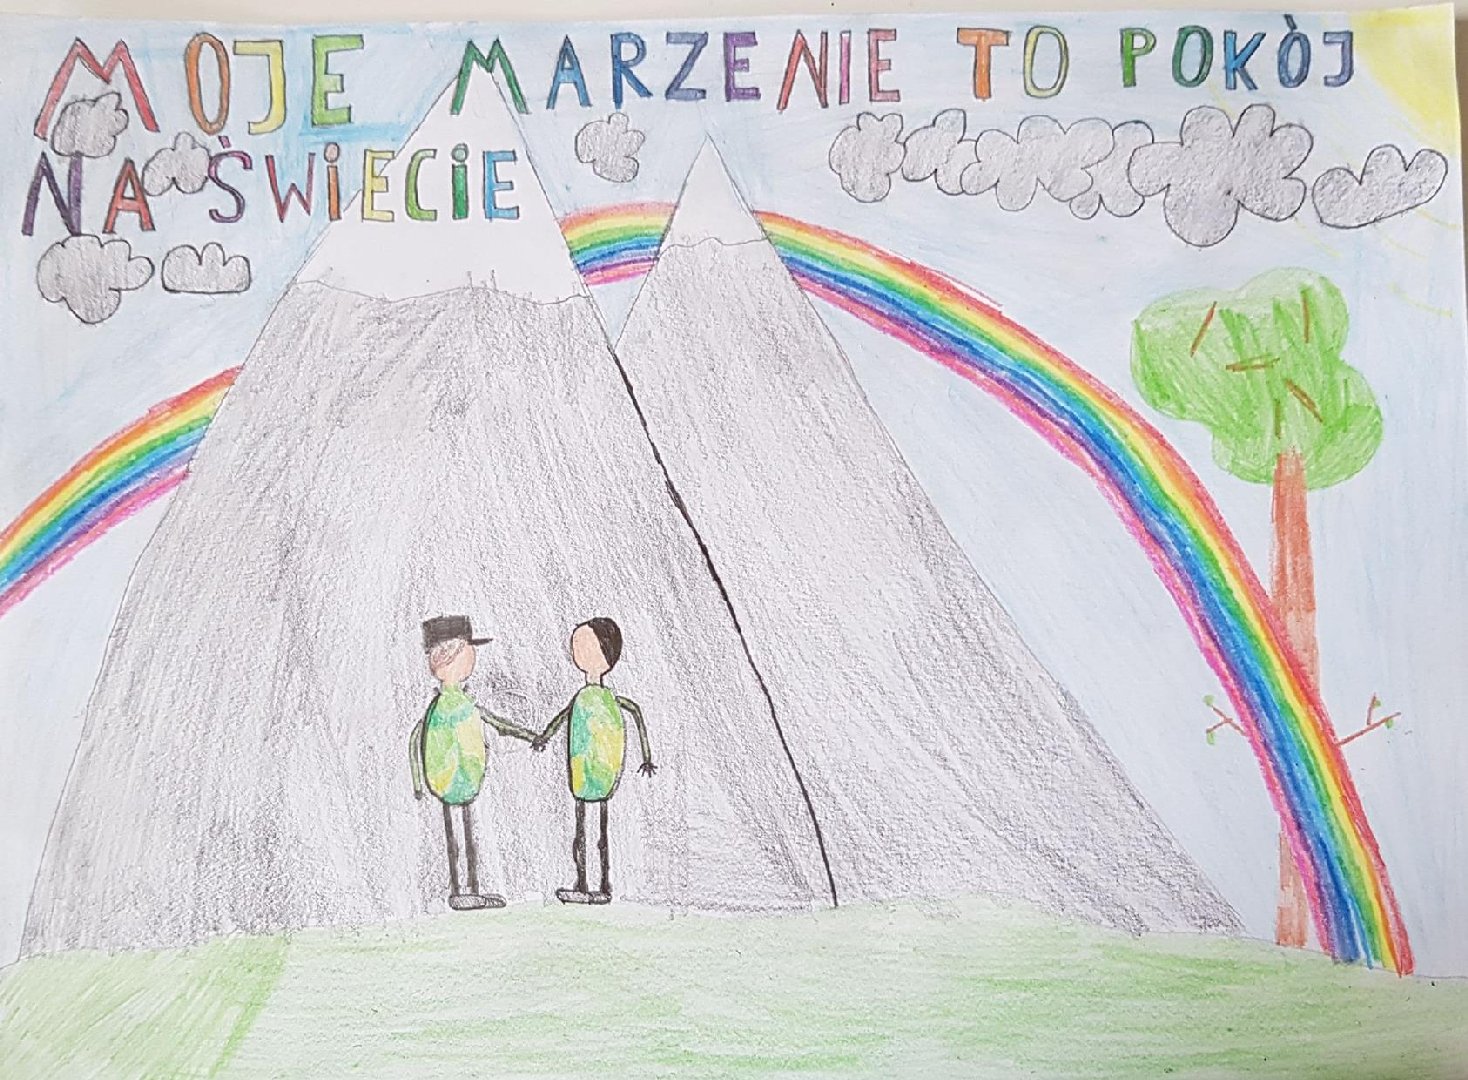 MOJE MARZENIE TO POKÒJ
NA ŚWiECiE